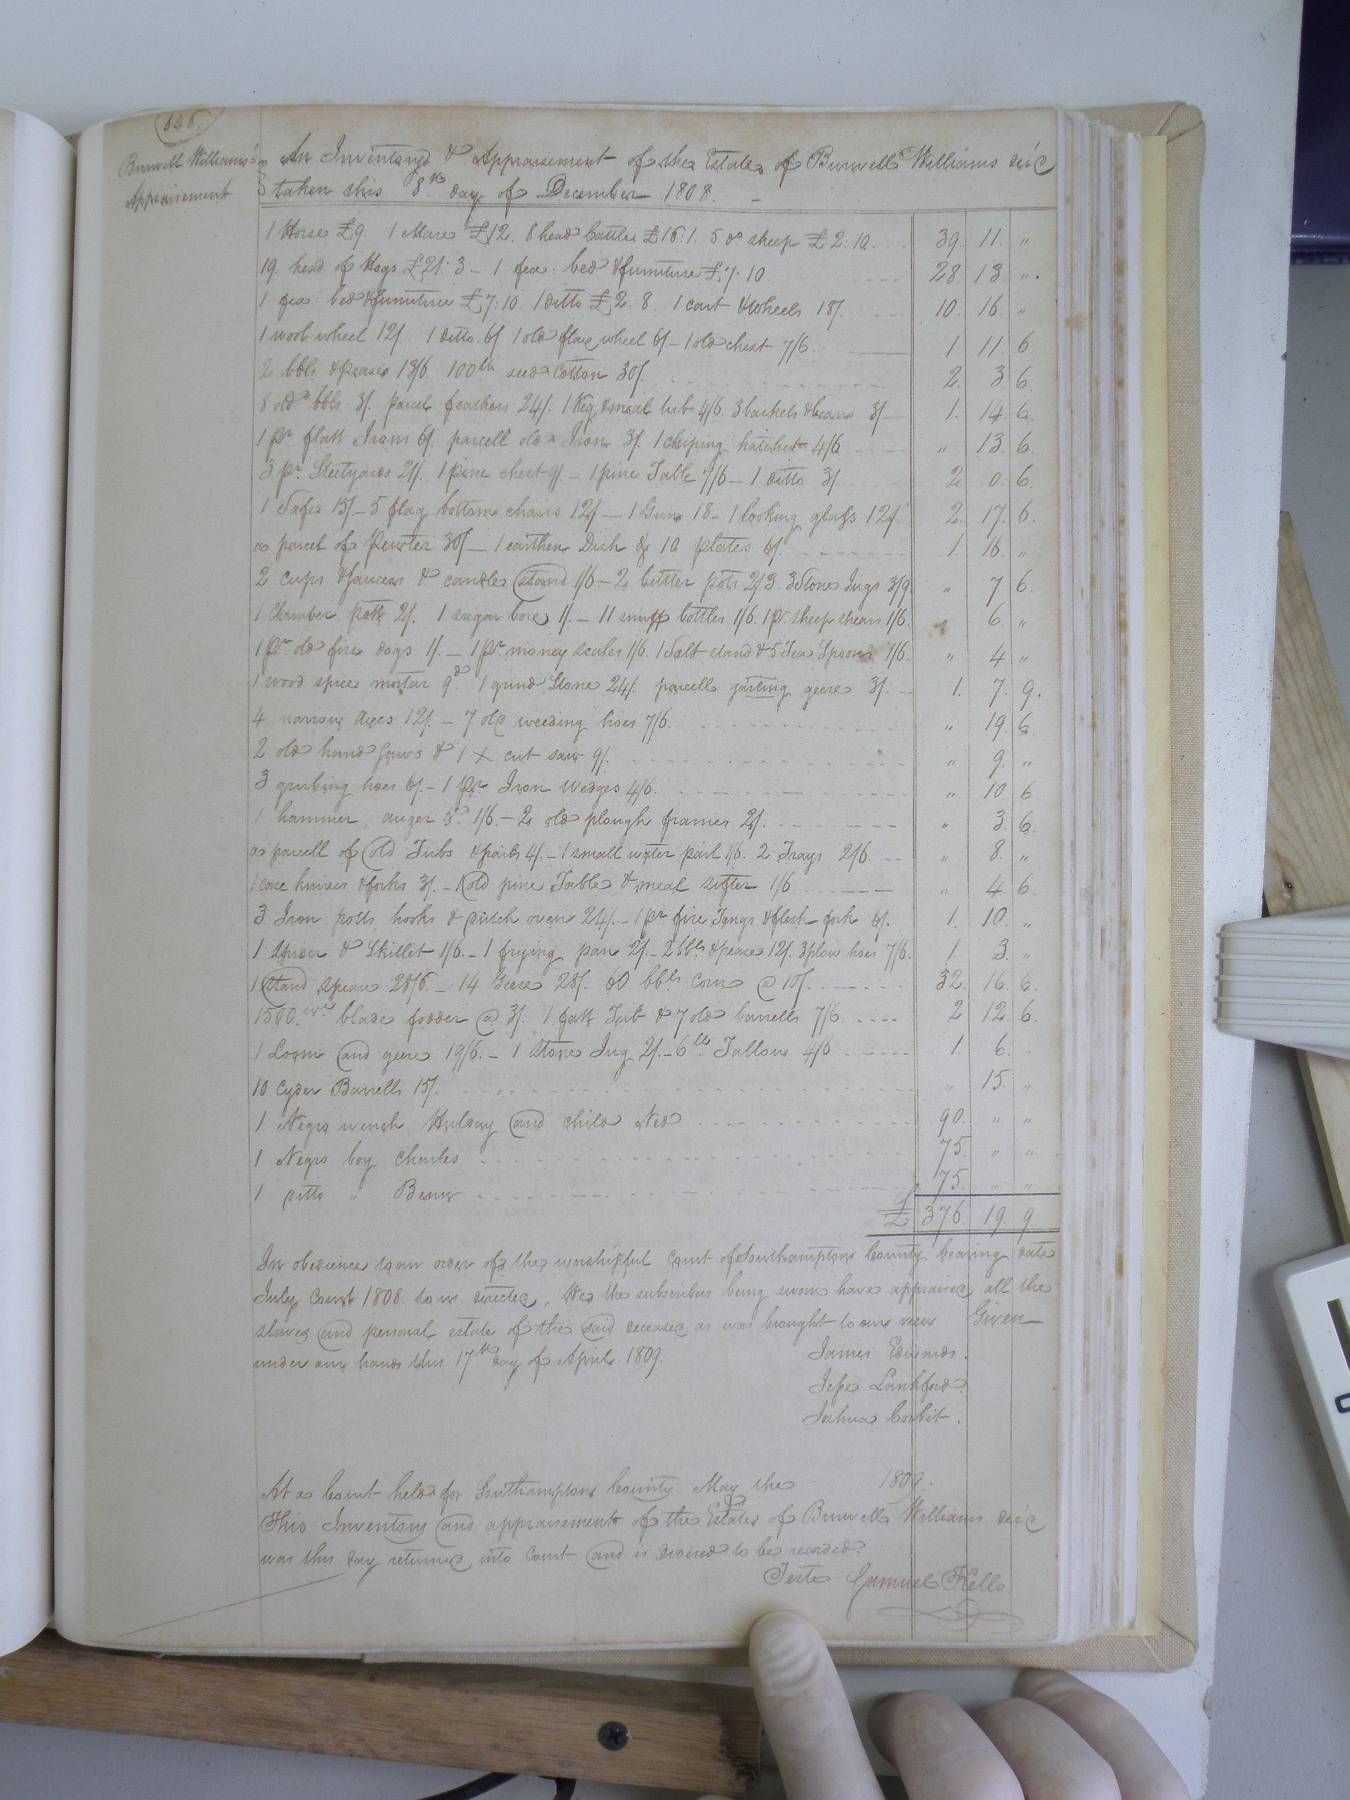 646.
Burwell Williams's
Appraisement
An Inventory & Appraisement of the Estate of Burwell Williams dec'd
taken this 8th day of December 1808. –
1 Horse £9. 1 Mare £12. 8 head Cattle £16.1. 5 do sheep £2.10. 39. 11. "
19 head of Hogs £21.3 – 1 fea. bed & furniture £7.10 28. 13. "
1 fea. bed & furniture £7.10. 1 ditto £2.8. 1 cart & wheels 18/. 10. 16. "
1 wool wheel 12/. 1 ditto 6/ 1 old flax wheel 6/ – 1 old chest 7/6. 1. 11. 6.
2 bbls & pease 13/6. 100lb seed Cotton 30/. 2. 3. 6.
8 old bbls 3/. parcel feathers 24/. 1 Keg & meal tub 4/6. 3 baskets & 3/ – 1. 14. 6.
1 pr flatt Irons 6/. parcell old Iron 3/. 1 chiping hatchet 4/6 " 13. 6.
3 pr Steelyards 21/. 1 pine chest 9/. – 1 pine Table 7/6 – 1 ditto 3/ 2. 0. 6.
1 Safe 15/. – 5 flag bottom chairs 12/ – 1 Gun 18 – 1 looking glass 12/. 2. 17. 6.
a parcel of Pewter 30/ – 1 earthen Dish & 10 plates 6/. 1. 16. "
2 cups & saucers & candle stand 1/6 – 2 butter pots 2/3. 3 Stone Jugs 3/9. " 7 6.
1 Chamber pott 2/. 1 sugar box 1/. – 11 snuff bottles 1/6. 1 pr. sheep shears 1/6. " 6. "
1 pr old fire dogs 1/. – 1 pr. money scales 1/6. 1 Salt stand & 5 Tea Spoons 1/6. " 4 "
1 wood spice mortar 9d. 1 grind Stone 24/. parcell geere 3/. 1. 7. 9.
4 narrow Axes 12/. – 7 old weeding hoes 7/6. " 19. 6
2 old hand saws & 1 X cut saw 9/. " 9. "
3 grubing hoes 6/. – 1 pr Iron wedges 4/6. " 10 6
1 hammer, auger 1/6. – 2 old plough frames 2/. " 3. 6.
a parcell of old Tubs & pails 4/. – 1 small water pail 1/6. 2 Trays 2/6. " 8. "
1 case knives & forks 3/. – 1 old pine Table & meal sifter 1/6 " 4 6.
3 Iron potts, hooks & dutch oven 24/. – 1 pr fire Tongs & flesh-fork 6/. 1. 10. "
1 Spider & Skillet 1/6. – 1 frying pan 2/. – 2 bbls & pease 12/. 3 plow hoes 7/6. 1. 3. "
1 stand 28/6. – 14 Geese 28/. 60 bbls Corn @ 10/. 32. 16. 6.
1500.wt blade fodder @ 3/. 1 fatt Tub & 7 old barrells 7/6. 2 12. 6.
1 Loom and geere 19/6. – 1 Stone Jug 2/. – 6lb Tallow 4/6 1. 6.
10 Cyder Barrells 15/. " 15. "
1 Negro wench and child Ned 90. " "
1 Negro boy Charles 75. " "
1 ditto " 75. " "
£ 376. 19. 9
In obedience to an order of the worshipful Court of Southampton County bearing date
July Court 1808. to us directed, We the subscribers being sworn have appraised all the
slaves and personal estate of the said deceased as was brought to our view Given
under our hands this 17th day of April 1809.
James Edwards.
Jesse Lankford.
Joshua Corbit.
At a Court held for Southampton County May the 1809.
This Inventory and appraisement of the Estate of Burwell Williams dec'd
was this day returned into Court and is ordered to be recorded.
Teste Samuel Kello